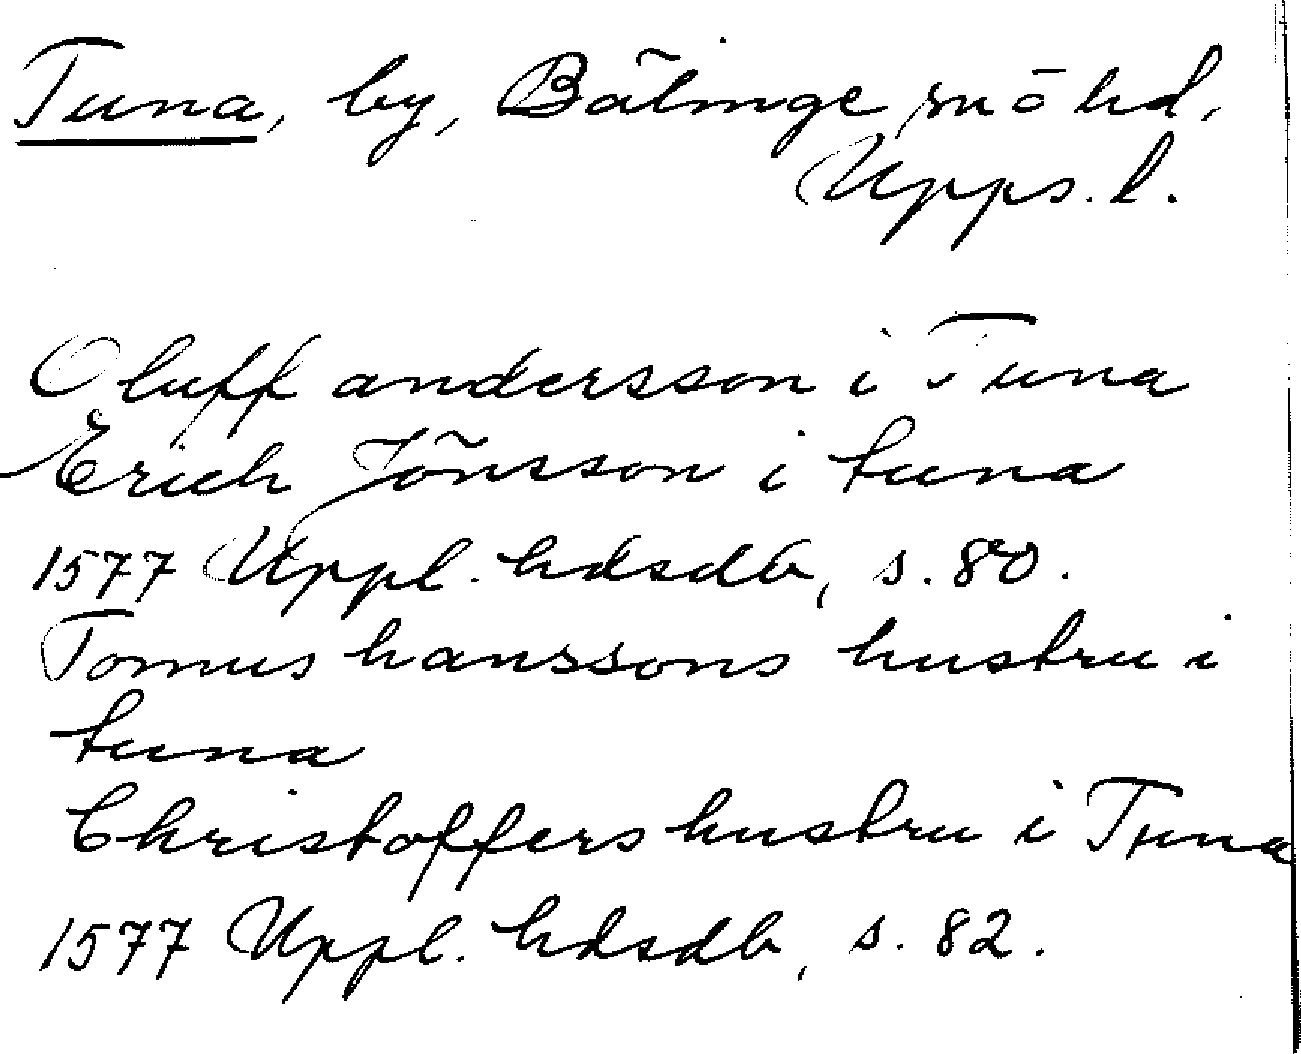 Tuna, by, Bälinge sn ö hd,
Upps. l.
Oluff andersson i Tuna
Erich Jönsson i tuna
1577 Uppl. hdsdb, s. 80.
Tomus hanssons hustru i
tuna
Christoffers hustru i Tuna
1577 Uppl. hdsdb, s. 82.